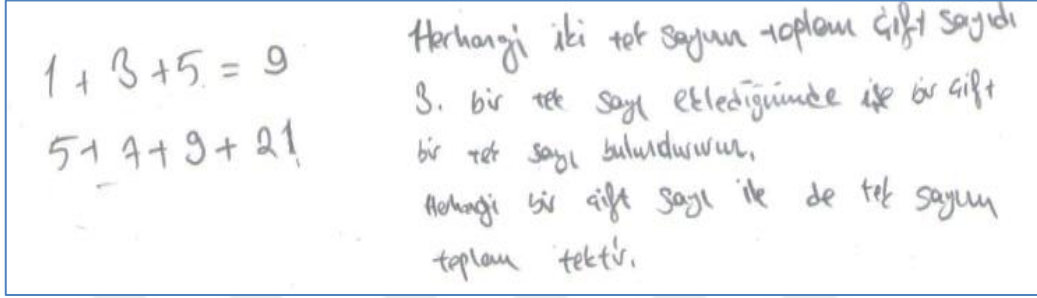 1 + 3 + 5 = 9
5 + 7 + 9 + 21
Herhangi iki tek sayının toplamı çift sayıdı
3. bir tek sayı eklediğimizde ise bir çift
bir tek sayı bulundururuz.
Herhangi bir çift sayı ile de tek sayının
toplamı tektir.